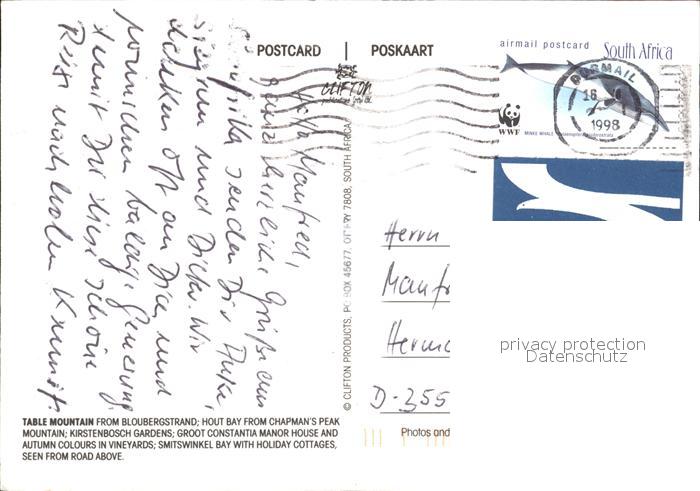 POSTCARD | POSKAART
airmail postcard South Africa
CLIFTON
WWF
MINKE WHALE
18
1998
Hallo Manfred,
ganz herzliche Grüße aus
Südafrika senden Dir Anke,
und Dieter. Wir
denken oft an Dich und
wünschen baldige Genesung,
damit Du diese schöne
Reise nachholen kannst.
Herrn
Manfr
Herma
D-355
© CLIFTON PRODUCTS, PO BOX 45677, OTTERY 7808, SOUTH AFRICA
privacy protection
Datenschutz
TABLE MOUNTAIN FROM BLOUBERGSTRAND; HOUT BAY FROM CHAPMAN'S PEAK
MOUNTAIN; KIRSTENBOSCH GARDENS; GROOT CONSTANTIA MANOR HOUSE AND
AUTUMN COLOURS IN VINEYARDS; SMITSWINKEL BAY WITH HOLIDAY COTTAGES,
SEEN FROM ROAD ABOVE.
Photos and